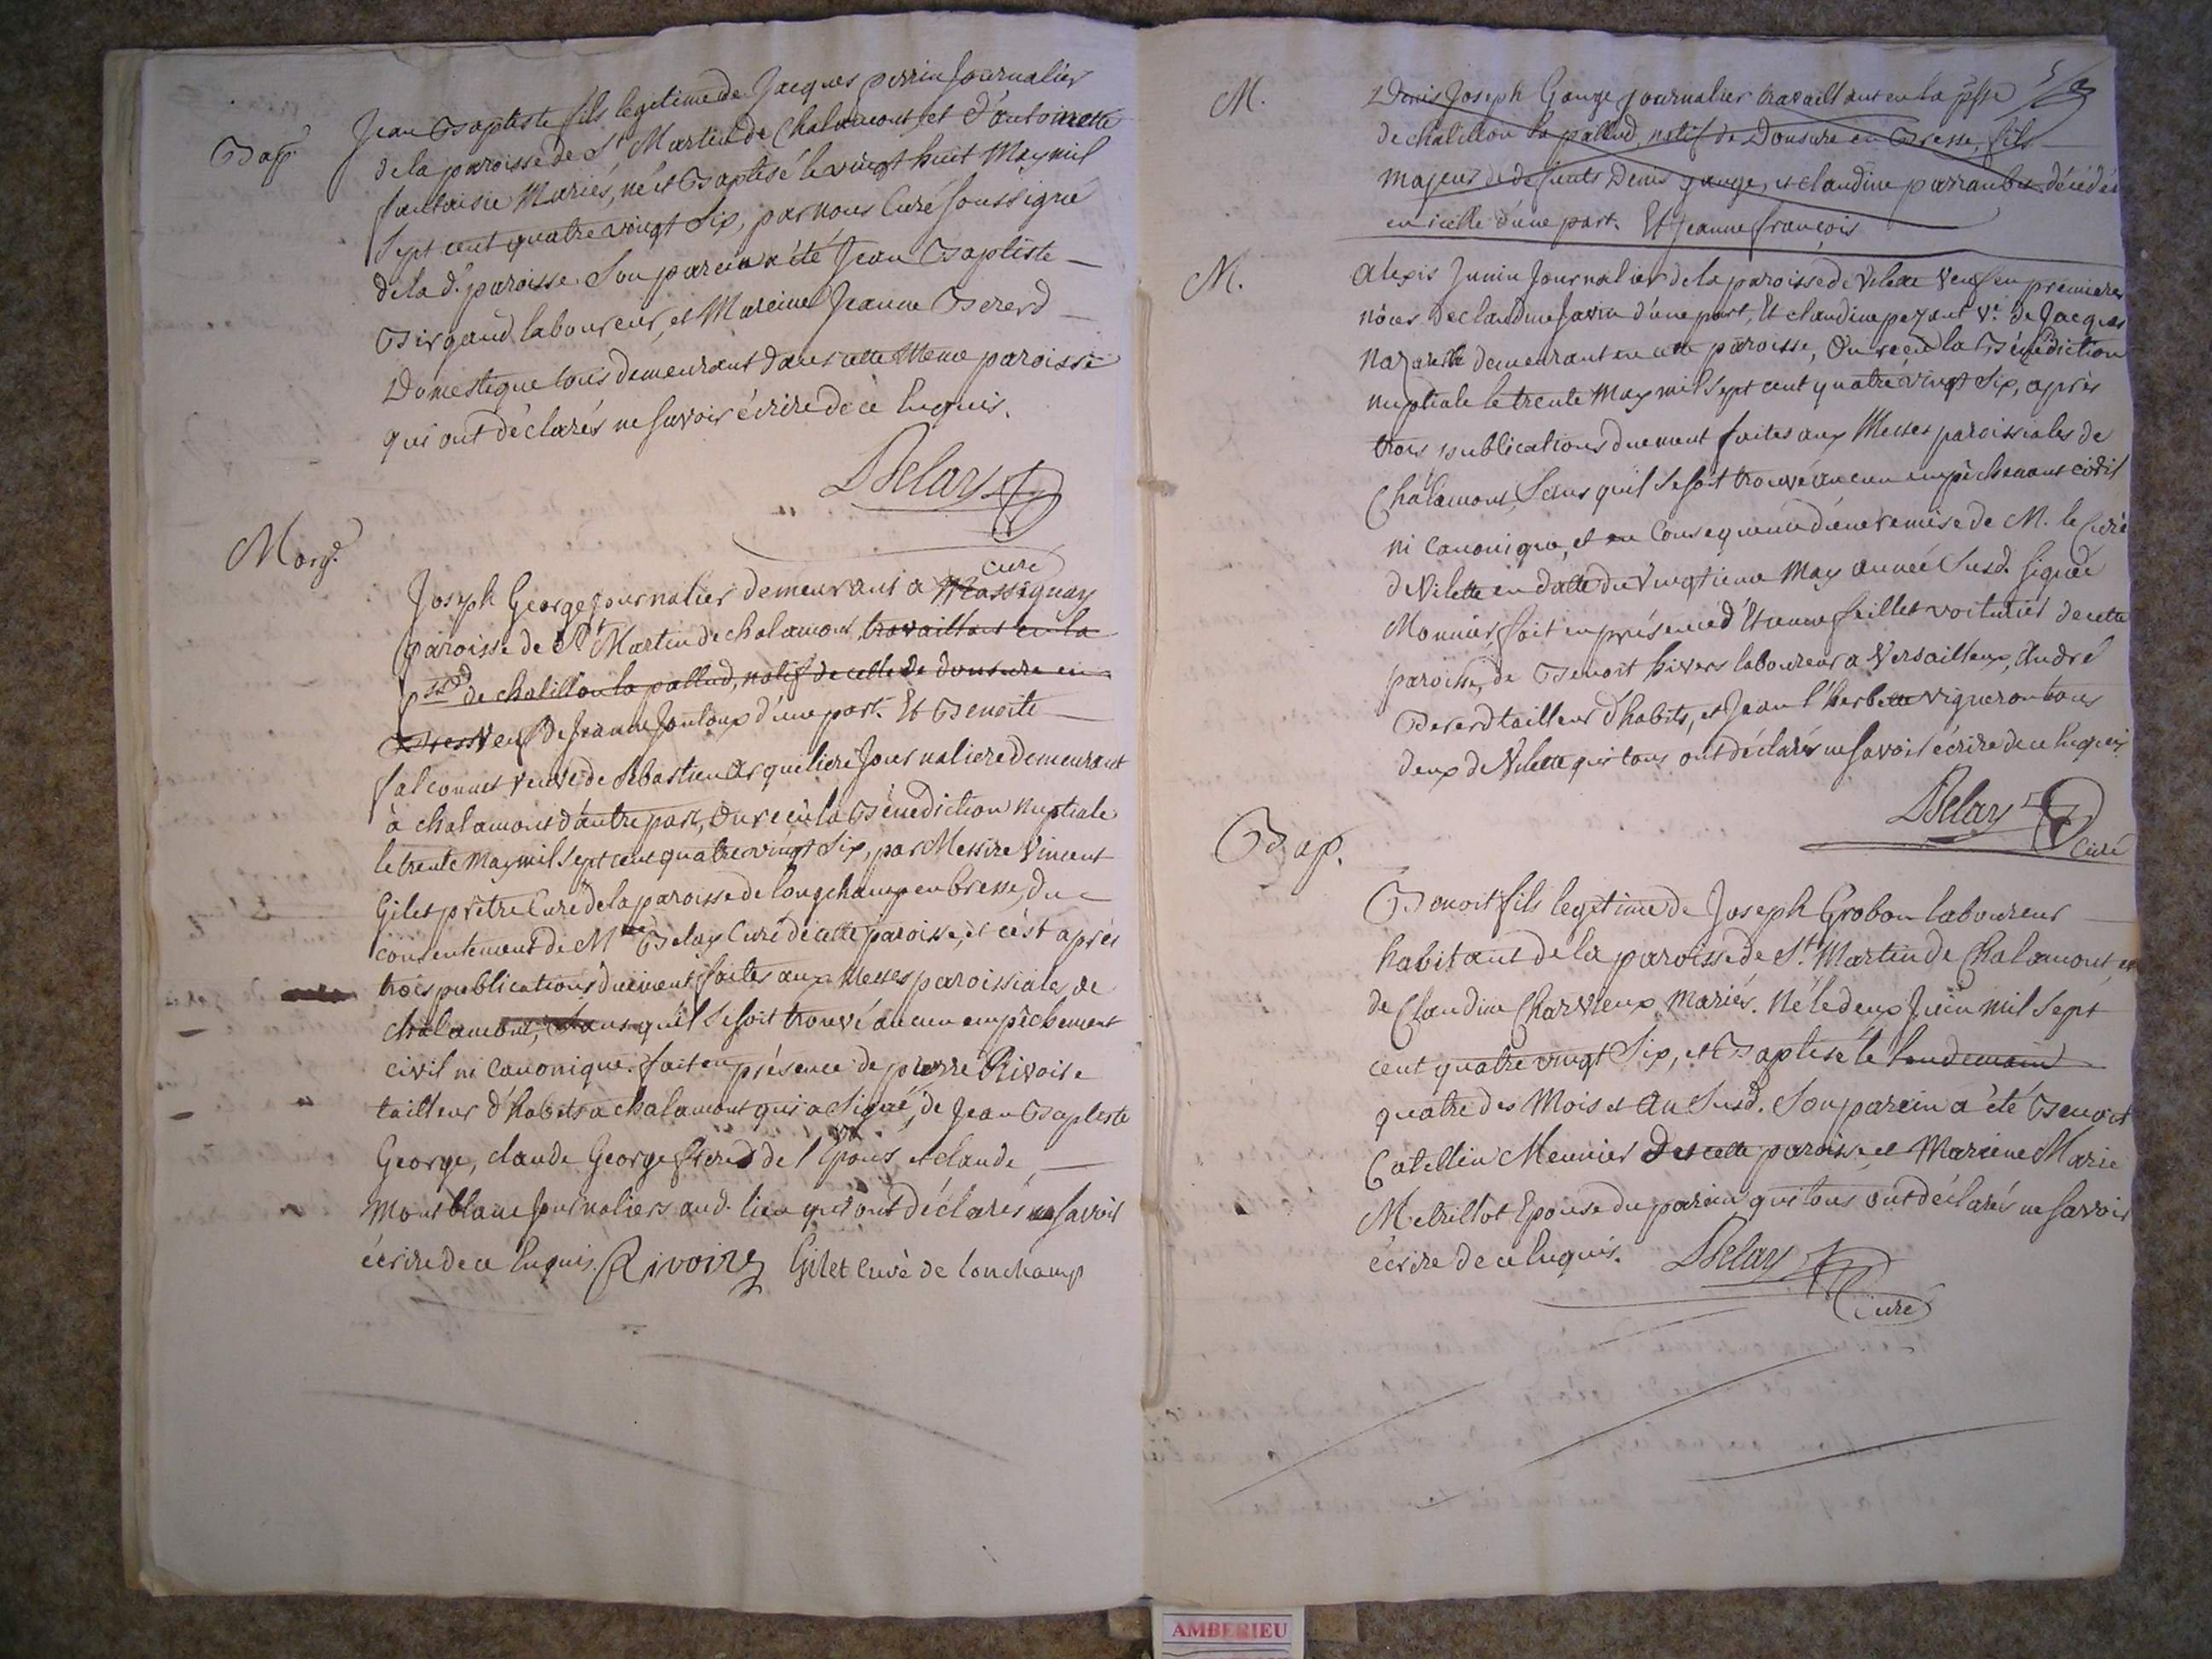 Bap.
Jean Baptiste fils legitime de Jacques perrin Journalier
de la paroisse de St Martin de Chalamont, et d'antoinette
fantaisie Mariés, né et Baptisé le vingt huit May mil
sept cent quatre vingt Six, par nous Curé soussigné
de la d. paroisse. Son parein a été Jean Baptiste
Birgaud laboureur, et Mareine Jeanne Bererd
Domestique tous demeurant dans cette Meme paroisse
qui ont déclarés ne savoir écrire de ce Enquis.
Belay
curé
Marg.
Joseph George Journalier demeurant a Massignay
paroisse de St Martin de chalamont, travaillant en la
psse de chatillon la pallud, natif de celle de donsure en
Bress veuf de Jeanne Jonloup d'une part. Et Benoite
falconnet veuve de Sebastien Arqueliere Journaliere demeurant
à chalamont d'autre part, On reçu la Bénédiction Nuptiale
le trente May mil sept cent quatre vingt Six, par Messire Vincent
Gilet prêtre Curé de la paroisse de longchamp en bresse, du
consentement de Mre Belay Curé de cette paroisse, et c'est après
trois publications duement faites aux Messes paroissiales de
chalamont, Sans qu'il se soit trouvé aucun empêchement
civil ni canonique. fait en présence de pierre Rivoire
tailleur d'habits a chalamont qui a Signé, de Jean Baptiste
George, claude George freres de l'Epous et claude
Montblanc Journaliers aud. lieu qui ont déclarés ne savoir
écrire de ce Enquis. Rivoire Gilet curé de lonchamp
M.
Denis Joseph Gange journalier travaillant en la psse
de chatillon la pallud, natif de Donsure en Bresse, fils
majeur de defunts Denis gange, et claudine parrambet décédés
en icelle d'une part. Et Jeanne françois
M.
Alexis Junin Journalier de la paroisse de Vilette Veuf en premieres
nôces de claudine Javin d'une part, Et claudine peyant Ve de Jacques
Nazareth demeurant en cette paroisse, On reçu la Bénédiction
nuptiale le trente May mil sept cent quatre vingt Six, après
trois publications duement faites aux Messes paroissiales de
Chalamont, Sans quil se soit trouvé aucun empêchement civil
ni canonique, et en Consequence d'une remise de M. le Curé
de Vilette en datte du Vingtieme May année Susd. signée
Monnier, fait en présence d'Etienne feillet voiturier de cette
paroisse, de Benoit hivers laboureur a Versailleux, André
Bererd tailleur d'habits, et Jean l'herbette vigneron tous
deux de Vilette qui tous ont déclarés ne savoir écrire de ce Enquis
Belay
Curé
Bap.
Benoit fils legitime de Joseph Grobon laboureur
habitant de la paroisse de St Martin de Chalamont et
de Claudine Charvieux Mariés. Né le deux Juin mil sept
cent quatre vingt Six, et Baptisé le lendemain
quatre des Mois et An Susd. Son parein a été Benoit
Catellin Meunier de cette paroisse et Mareine Marie
Metrillot Epouse du parein qui tous ont déclarés ne savoir
écrire de ce Enquis. Belay
Curé
AMBERIEU